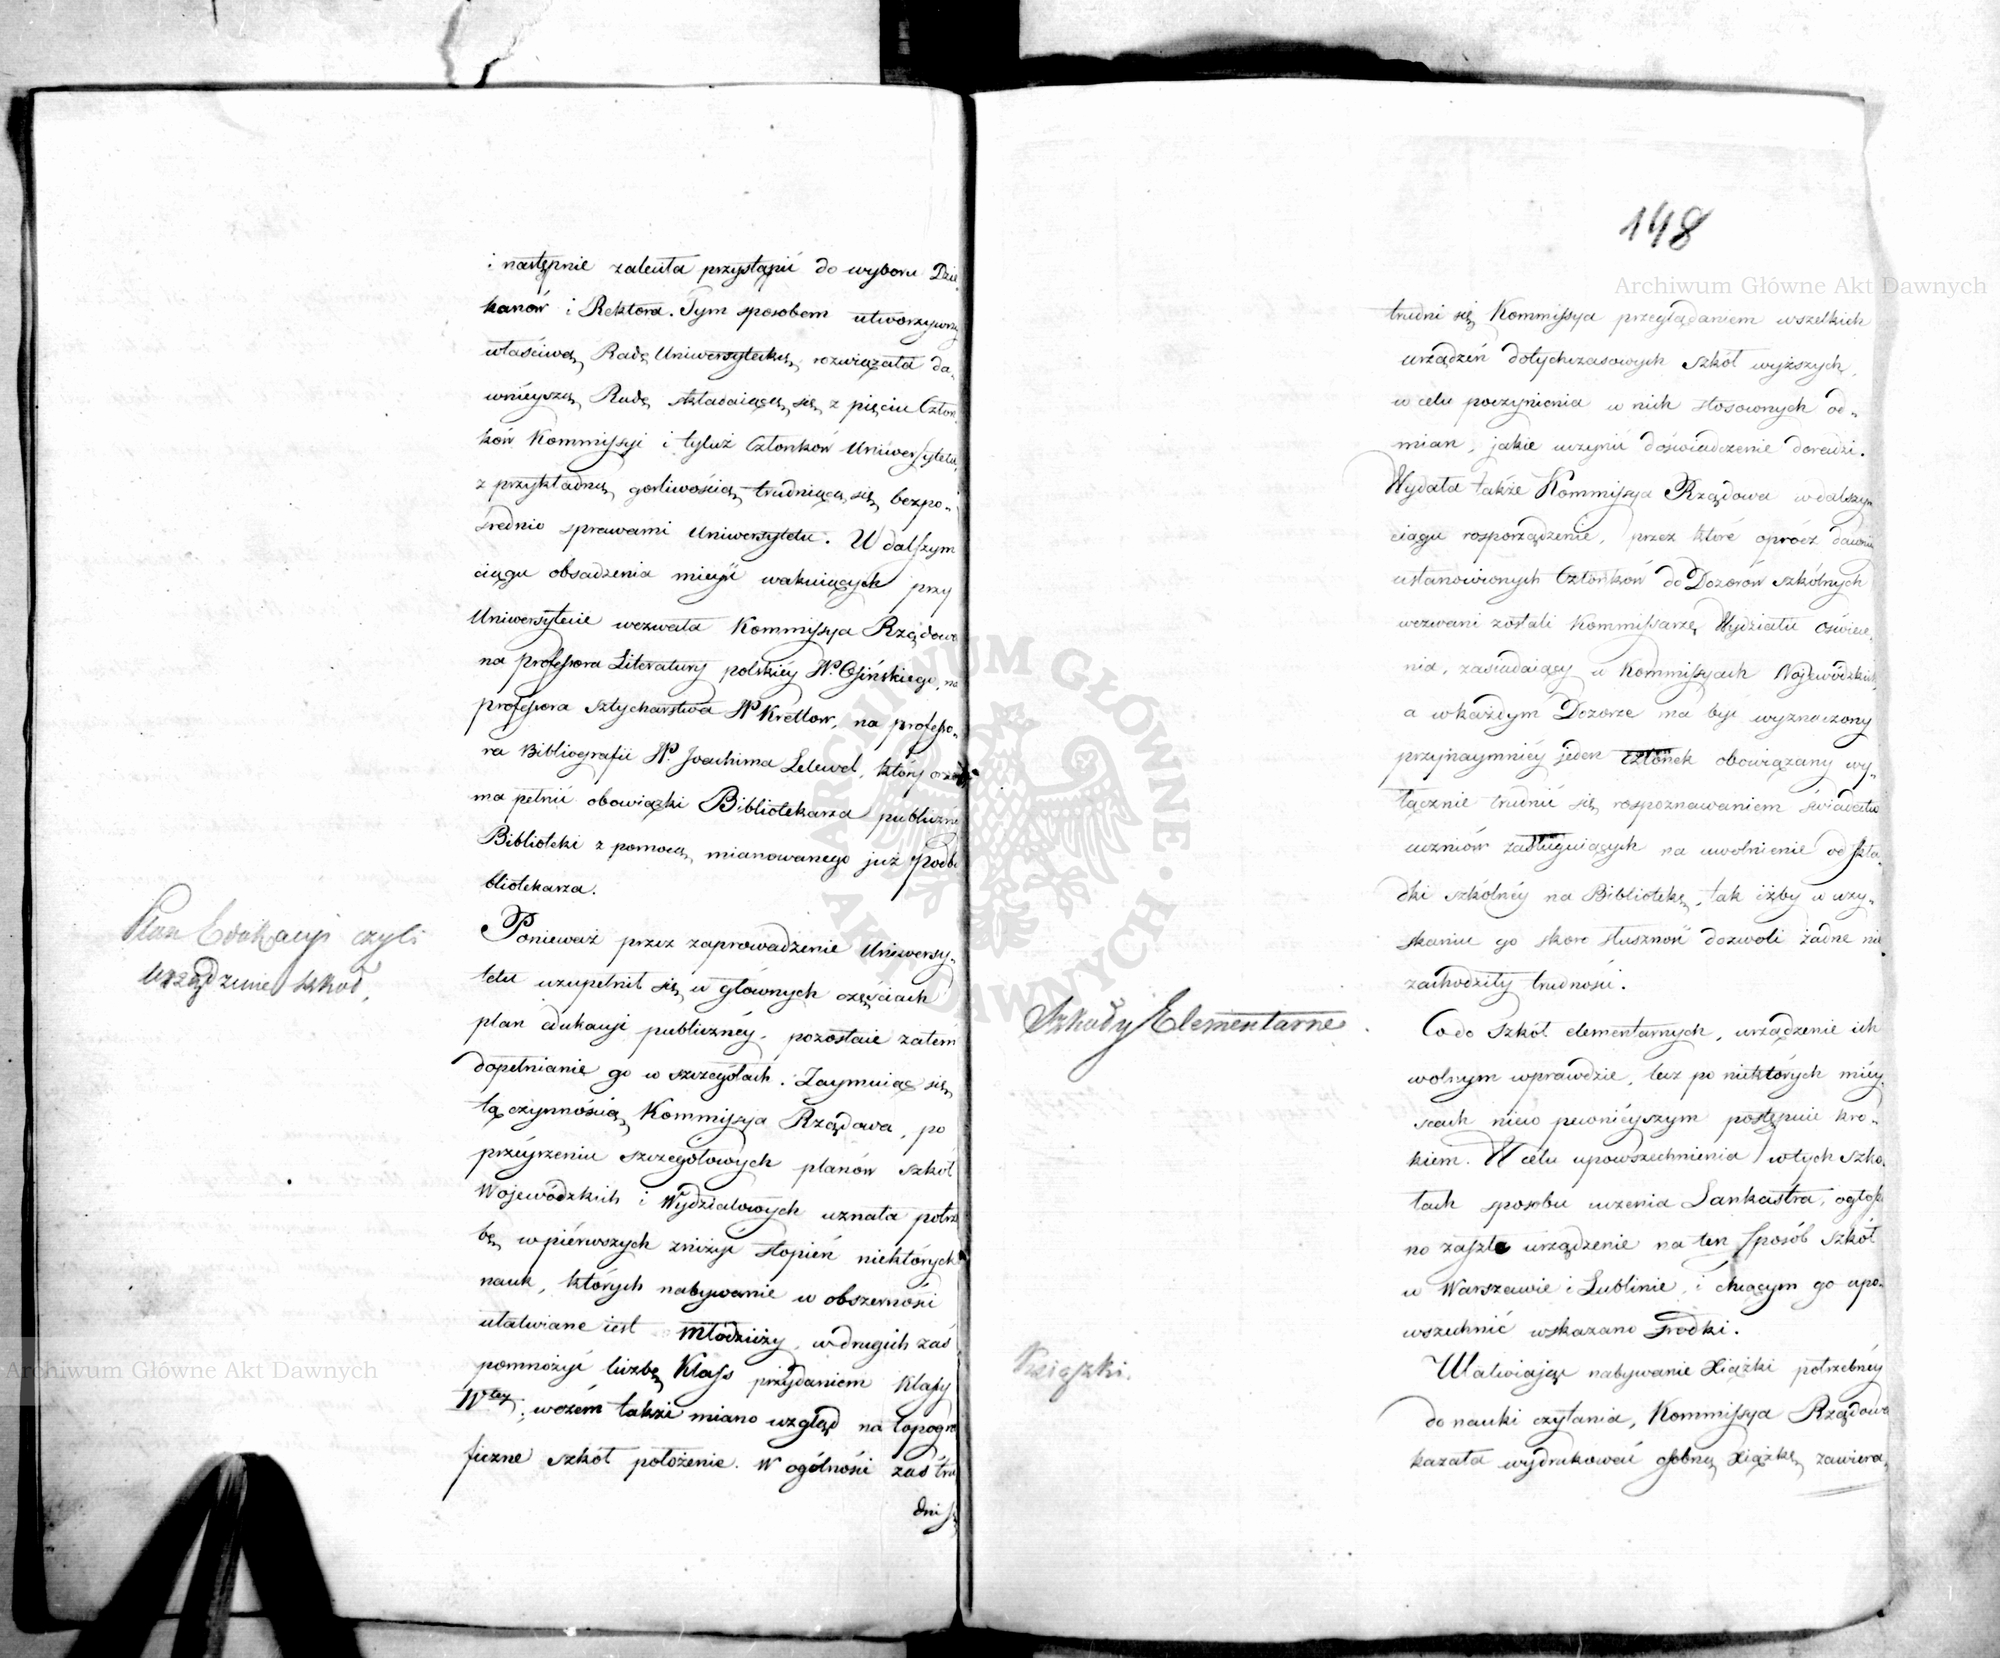 i następnie zaleciła przystąpić do wyboru Dzie-
kanów i Rektora. Tym sposobem utworzywszy
właściwą Radę Uniwersytecką, rozwiązała da-
wnieyszą Radę składaiącą się z pięciu Człon-
ków Kommissyi i tyluż Członków Uniwersytetu,
z przykładną gorliwością trudniącą się bezpo-
średnio sprawami Uniwersytetu. W dalszym
ciągu obsadzenia mieysc wakuiących przy
Uniwersytecie wezwała Kommissya Rządowa
na professora Literatury polskiéy W. Osińskiego, na
professora sztycharstwa W Krethow, na professo-
ra Bibliografii W. Joachima Lelewel, który oraz
ma pełnić obowiązki Bibliotekarza publiczné
Biblioteki z pomocą mianowanego już Podbi
bliotekarza.
Plan Edukacyi czyli
urządzenie szkół.
Ponieważ przez zaprowadzenie Uniwersy-
tetu uzupełnił się w głównych częściach
plan edukacyi publicznéy, pozostaie zatém
dopełnianie go w szczegółach. Zaymuiąc się
tą czynnością Kommissya Rządowa, po
przéyrzeniu szczegółowych planów szkół
Wojewódzkich i Wydziałowych uznała potrze
bę w piérwszych zniżyć stopień niektórych
nauk, których nabywanie w obszerności
ułatwiane iest młodzieży, w drugich zaś
pomnożyć liczbę Klass przydaniem Klassy
IV tey; wczém także miano wzgląd na topogra
ficzne szkół położenie. W ogólności zaś tru
dni się
148
Archiwum Główne Akt Dawnych
trudni się Kommissya przeglądaniem wszelkich
urządzeń dotychczasowych szkół wyższych,
w celu poczynienia w nich stosownych od-
mian, jakie uczynić doświadczenie doradzi.
Wydała także Kommissya Rządowa w dalszym
ciągu rosporządzenie, przez które oprócz dawnie
ustanowionych Członków do Dozorów szkólnych
wezwani zostali Kommissarze Wydziału Oświece-
nia, zasiadaiący w Kommissyach Wojewódzkich,
a w każdym Dozorze ma być wyznaczony
przynaymniéy jeden członek obowiązany wy-
łącznie trudnić się rospoznawaniem świadectw
uczniów zasługuiących na uwolnienie od skła-
dki szkólnéy na Bibliotekę, tak iżby w uzy-
skaniu go skoro słuszność dozwoli żadne nie
zachodziły trudności.
Szkoły Elementarne.
Co do Szkół elementarnych, urządzenie ich
wolnym wprawdzie, lecz po niektórych miey-
scach nieco pewnieyszym postępuie kro-
kiem. W celu upowszechnienia w tych szko-
łach sposobu uczenia Lankastra, ogłoszo
no zaszłe urządzenie na ten sposób szkół
w Warszawie i Lublinie, i chcącym go upo-
wszechnić wskazano środki.
Książki.
Ułatwiając nabywanie xiążki potrzebnéy
do nauki czytania, Kommissya Rządowa
kazała wydrukować osobną xiążkę, zawiera-
Archiwum Główne Akt Dawnych
ARCHIWUM GŁÓWNE AKT DAWNYCH